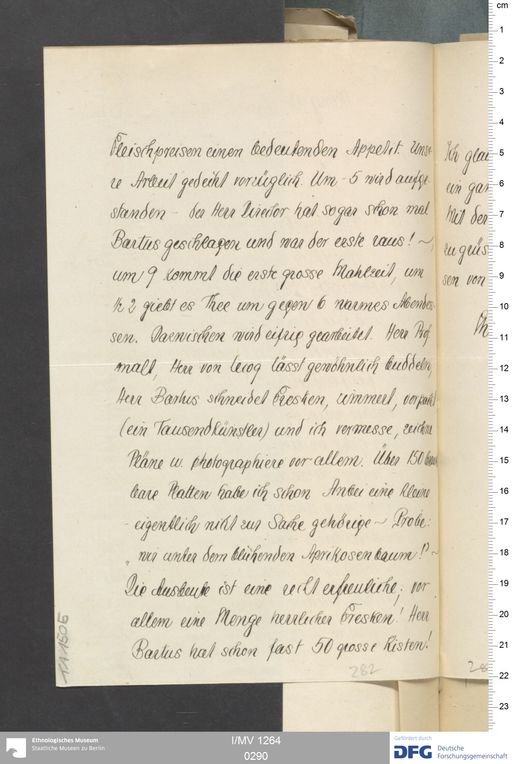 Fleischpreisen einen bedeutenden Appetit. Unse-
re Arbeit gedeiht vorzüglich. Um - 5 wird aufge-
standen - der Herr Director hat sogar schon mal
Bartus geschlagen und war der erste raus! ~,
um 9 kommt die erste grosse Mahlzeit, um
½ 2 giebt es Thee um gegen 6 warmes Abendes-
sen. Dazwischen wird eifrig gearbeitet. Herr Prof.
malt, Herr von Lecoq lässt gewöhnlich buddeln,
Herr Bartus schneidet Fresken, zimmert, verpackt
(ein Tausendkünstler) und ich vermesse, zeichne
Pläne u. photographiere vor allem. Über 150
bare Platten habe ich schon Anbei eine kleine
- eigentlich nicht zur Sache gehörige ~ Probe:
„ wer unter dem blühenden Aprikosenbaum!? ~
Die Ausbeute ist eine recht erfreuliche; vor
allem eine Menge herrlicher Fresken! Herr
Bartus hat schon fast 50 grosse Kisten!
282
Ich glau
ein gan
Mit den
zu grüs
sen von
TA 1506
cm
1
2
3
4
5
6
7
8
9
10
11
12
13
14
15
16
17
18
19
20
21
22
23
Ethnologisches Museum
Staatliche Museen zu Berlin
I/MV 1264
0290
Gefördert durch
DFG Deutsche
Forschungsgemeinschaft